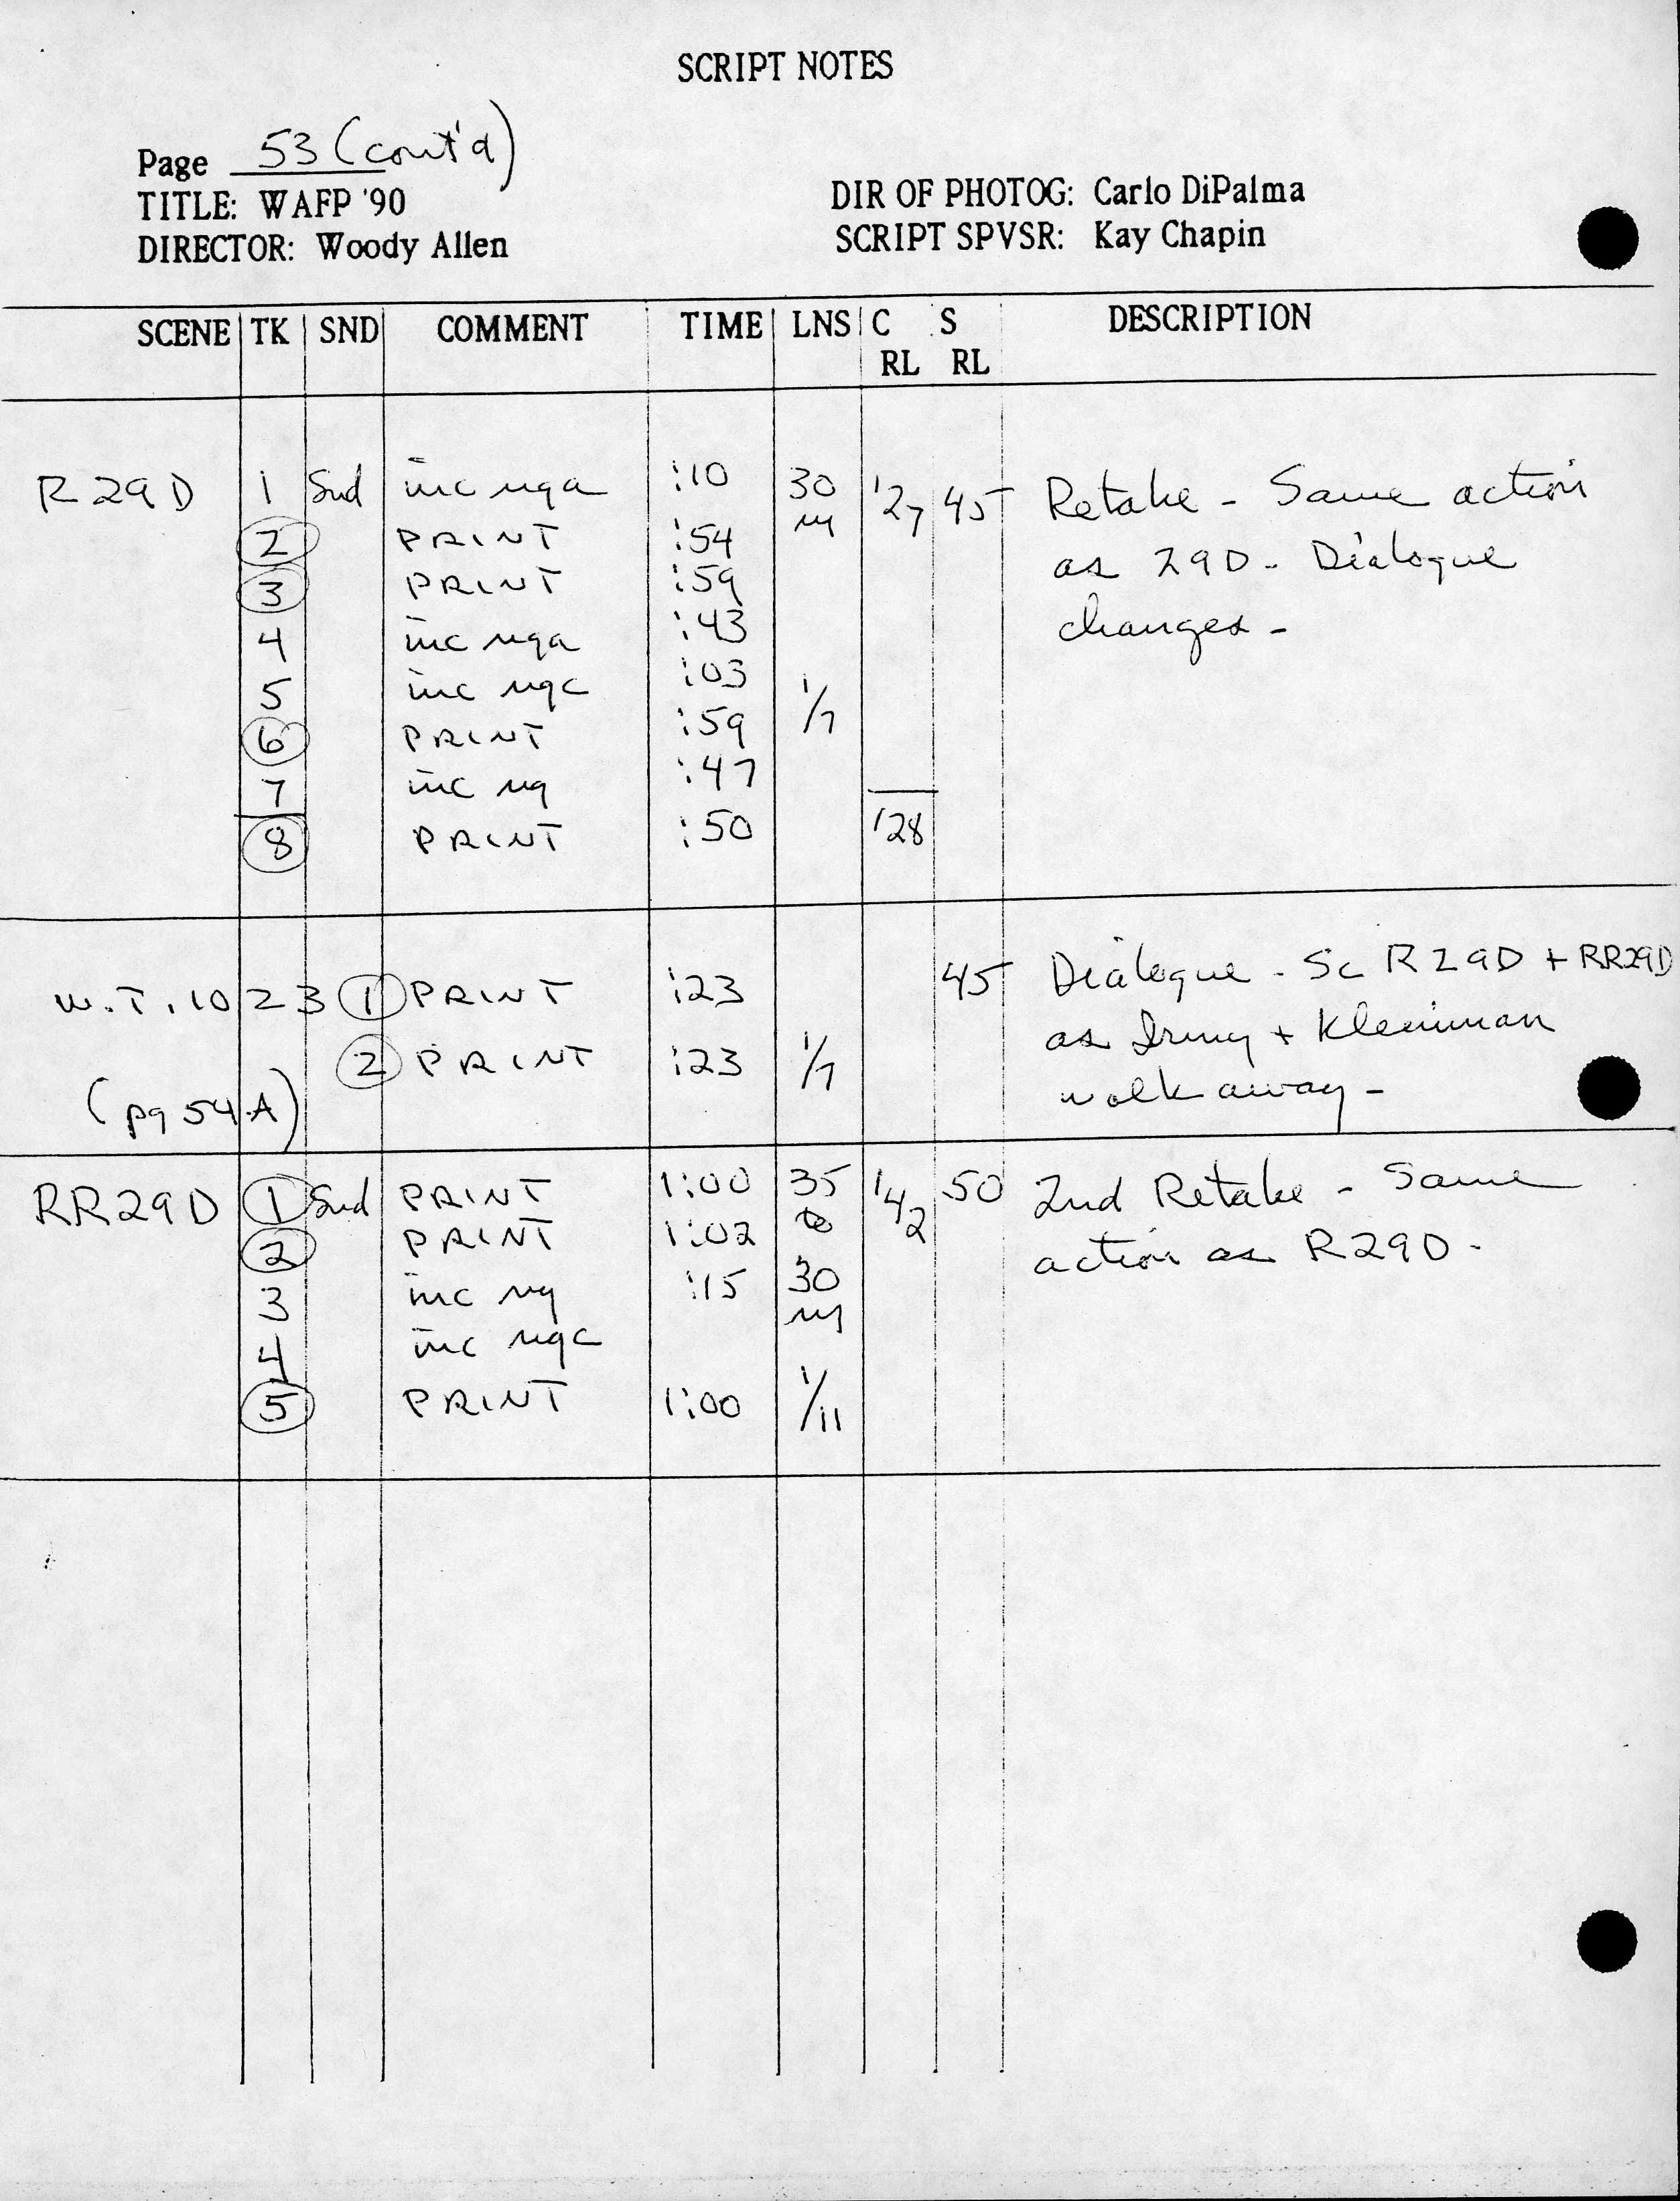 SCRIPT NOTES
Page 53 (cont'd)
TITLE: WAFP '90
DIRECTOR: Woody Allen
DIR OF PHOTOG: Carlo DiPalma
SCRIPT SPVSR: Kay Chapin
SCENE TK SND COMMENT TIME LNS C RL S RL DESCRIPTION
R29D 1 Snd inc nga :10 30 '27 45 Retake - Same action
2 PRINT :54 as 29D - Dialogue
3 PRINT :59 changes -
4 inc nga :43
5 inc ngc :03
6 PRINT :59 1/7
7 inc ng :47
8 PRINT :50 '28
W.T. 1023 1 PRINT :23 45 Dialogue - Sc R29D + RR29D
2 PRINT :23 1/7 as Irmy + Kleinman
(pg 54A) walk away -
RR29D 1 Snd PRINT 1:00 35 '42 50 2nd Retake - Same
2 PRINT 1:02 to action as R29D -
3 inc ng :15 30
4 inc ngc
5 PRINT 1:00 1/11